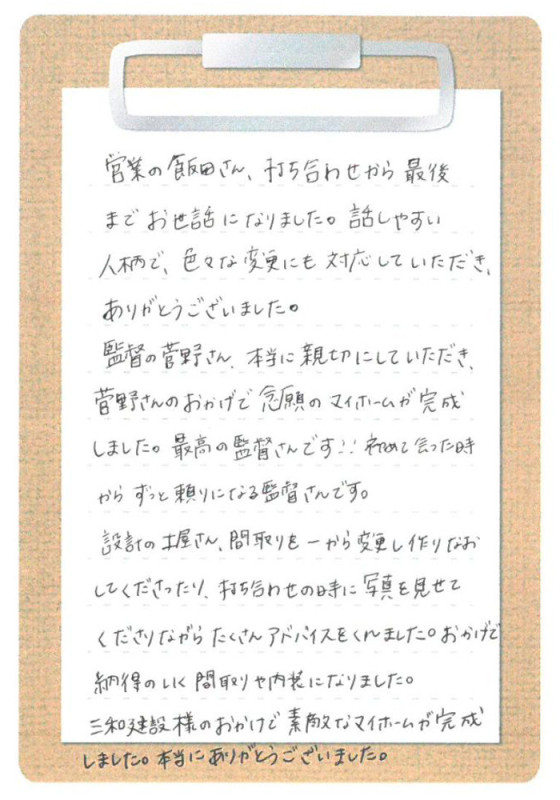 営業の飯田さん、打ち合わせから最後
までお世話になりました。話しやすい
人柄で、色々な変更にも対応していただき、
ありがとうございました。
監督の菅野さん、本当に親切にしていただき、
菅野さんのおかげで念願のマイホームが完成
しました。最高の監督さんです!! 初めて会った時
からずっと頼りになる監督さんです。
設計の土屋さん、間取りを一から変更し作りなお
してくださったり、打ち合わせの時に写真を見せて
くださりながらたくさんアドバイスをくれました。おかげで
納得のいく間取りや内装になりました。
三和建設様のおかげで素敵なマイホームが完成
しました。本当にありがとうございました。